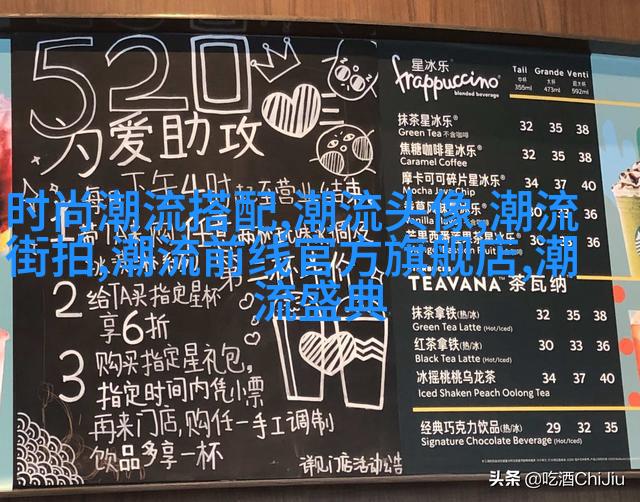 520
为爱助攻
时尚潮流搭配,潮流头像,潮流
街拍,潮流前线官方旗舰店,潮
流盛典
2 给TA买指定星杯
享6折
3 购买指定星礼包,
指定时间内凭小票
再来门店,购任一手工调制
饮品多享一杯
详见门店活动公告
星冰乐®
frappuccino®
blended beverage
Tall Grande Venti
中杯 大杯 超大杯
355ml 473ml 592ml
抹茶星冰乐® 32 35 38
Green Tea 不含咖啡
焦糖咖啡星冰乐® 32 35 38
Caramel Coffee
摩卡可可碎片星冰乐® 34 37 40
Mocha Java Chip
TEAVANA™ 茶瓦纳
抹茶拿铁(热/冰) 32 35 38
Green Tea Latte (Hot/Iced)
红茶拿铁(热/冰) 30 33 36
Black Tea Latte (Hot/Iced)
冰摇桃桃乌龙茶 34 37 40
Iced Shaken Peach Oolong Tea
经典巧克力饮品(热/冰) 29 32 35
Signature Chocolate Beverage (Hot/Iced)
头条 @吃酒ChiJiu